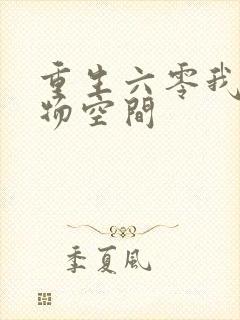 重生六零我
物空間
季夏風